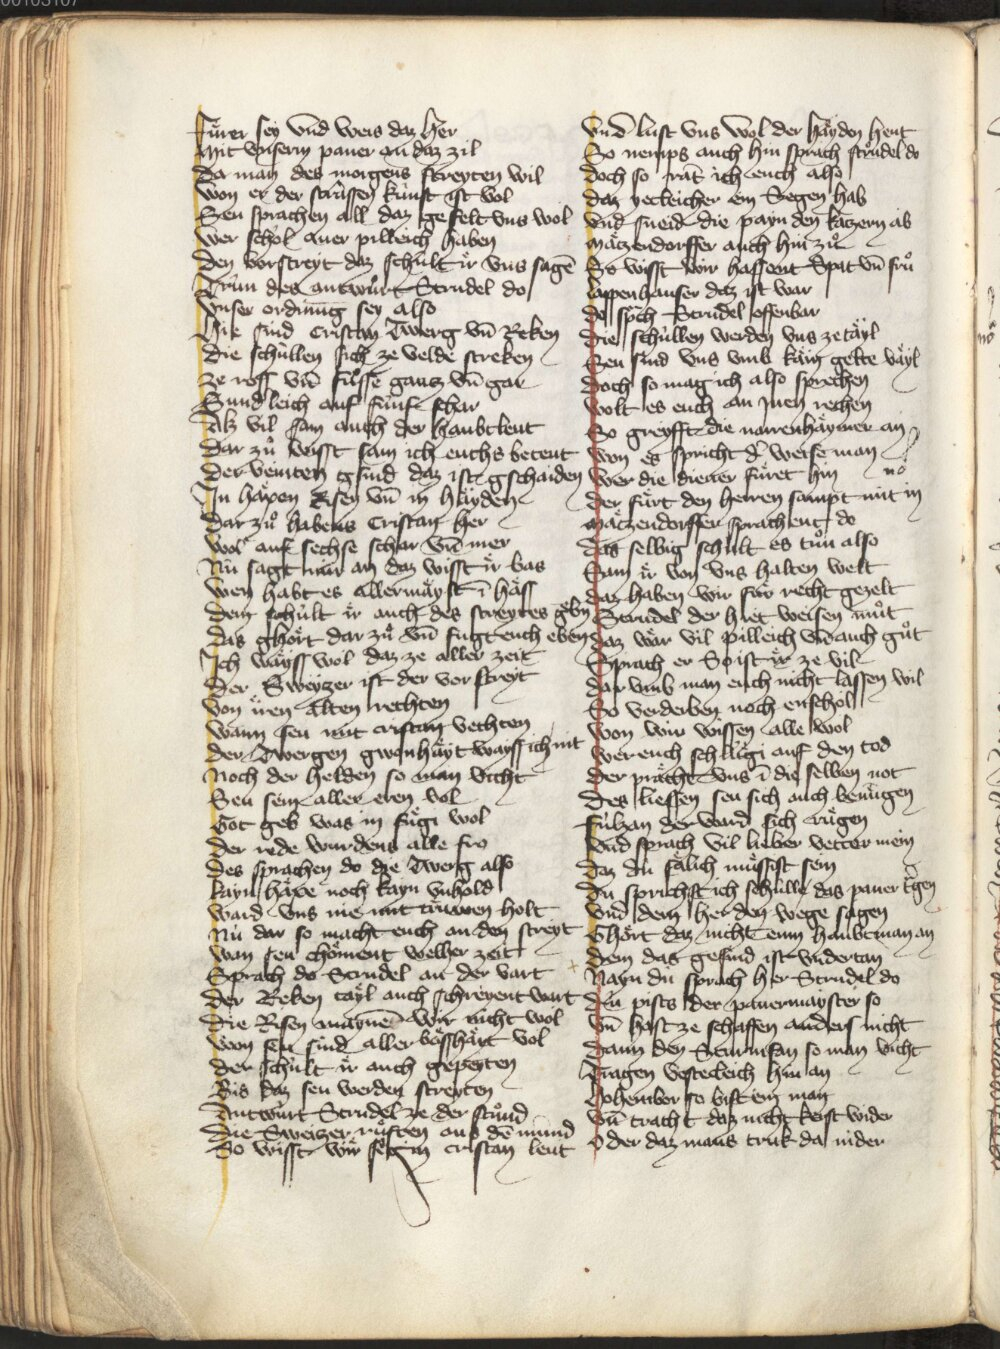 Fürer sey vnd weis daz her
Mit vnserm paner an daz zil
Da man des morgens streyten wil
Won er der strüssen kunst ist vol
Seu sprachen all daz gefelt vns wol
Wer schol auer pilleich haben
Den vorstreyt daz schült ir vns sagē
Trün des antwürt Strudel do
Vnser ordinūg sey also
Hie sind Cristan Twerg vn̄ Reken
Die schüllen sich ze velde streken
Ze ross vn̄ füsse gantz vn̄ gar
Sunderleich auf fünf schar
Alz vil sam auch der haubtleut
Dar zů wisst sam ich euchs beteut
Der veinten gsind daz ist gschaiden
In häxen Risen vn̄ in häyden
Dar zů habens Cristan her
Wol auf sechse schar vn̄ mer
Nu sagt mir an daz wisst ir bas
Wen habt es allermäyst ī häss
Dem schült ir auch des streytes gebn
Das ghört dar zů vn̄ fügt euch eben
Ich wayss wol daz ze aller zeit
Der Sweytzer ist der vor streyt
Von iren alten rechten
Wann seu mit cristan vechten
Der Twergen gwonhäyt wayss ich nit
Noch der helden so man vicht
Seu sein aller eren vol
Got geb was in fügi wol
Der rede wurdens alle fro
Des sprachen do die Twerg also
Kayn häxe noch kayn vnhold
Ward vns nie mit trüwen holt
Nu dar so macht euch an den streyt
Wan seu chöment welher zeit
Sprach do Strudel an der vart
Der Reken tayl auch schreyent wart
Die Risen maynē wir nicht wol
Won seu sind aller bösshäit vol
Der schült ir auch gepeyten
Bis daz seu werden streyten
Antwürt Strudel ze der stund
Die Sweitzer rüften aus dē mund
So wisst wir sein cristan leut
Vnd lust vns wol der häyden heut
So nemps auch hin sprach strudel do
Doch so rat ich euch also
Daz yeckleicher ein Segen hab
Vnd sneid die payn den katzern ab
Mätzendorffer auch hin zů
So wisst wir hassent spat vn̄ frů
Lappenhauser daz ist war
Do sp̄ch Strudel offenbar
Die schüllen werden vns ze täyl
Seu sind vns vmb käin gelte väyl
Doch so mag ich also sprechen
Wolt es euch an inen rechen
So greyfft die narrenhäymer an
Won es spricht d̄ weise man
Wer die diener füret hin
Der fürt den herren sampt mit in
Mätzendorffer sprachent do
Das selbig schült es tůn also
Sam ir von vns halten welt
Daz haben wir für recht gezelt
Strudel der hiet weisen můt
Daz wär vil pilleich vnd auch gůt
Sprach er So ist ir ze vil
Dar vmb man euch nicht lassen wil
So verderben noch enschol
Won wir wissen alle wol
Wer euch schlügi auf den tod
Der prächt vns ī die selben not
Des liessen seu sich auch benügen
Fülzan der ward sich rügen
Vnd sprach vil lieber vetter mein
Daz du sälich müssist sein
Du sprichst ich schülle das paner tͤgen
Vnd dem her den wege sagen
Ghört daz nicht eim haubtman an
Dem das gesind ist vndertan
Nayn du sprach her Strudel do
Du pist der panermayster so
Vn̄ hast ze schaffen anders nicht
Dann den Sturmfan so man vicht
Tragen vestecleich hin an
Dohember so bist ein man
Vn̄ tracht daz nicht kerst wider
Oder daz mans truk da nider